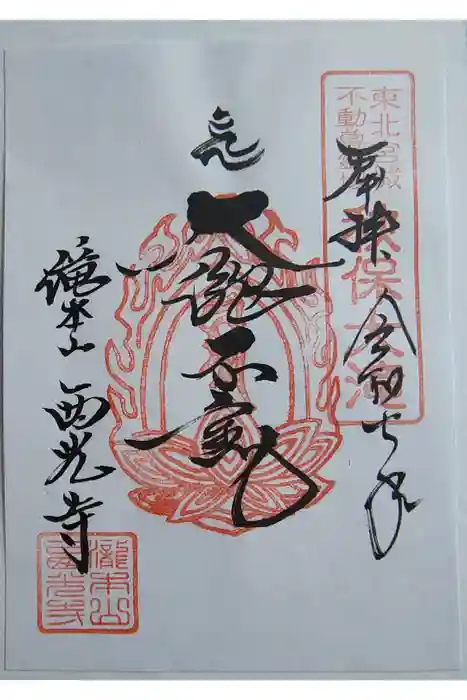 奉拝 令和七年
東北宮城
不動尊
秋保大滝
大瀧不動
瀧本山 西光寺
瀧本山
西光寺